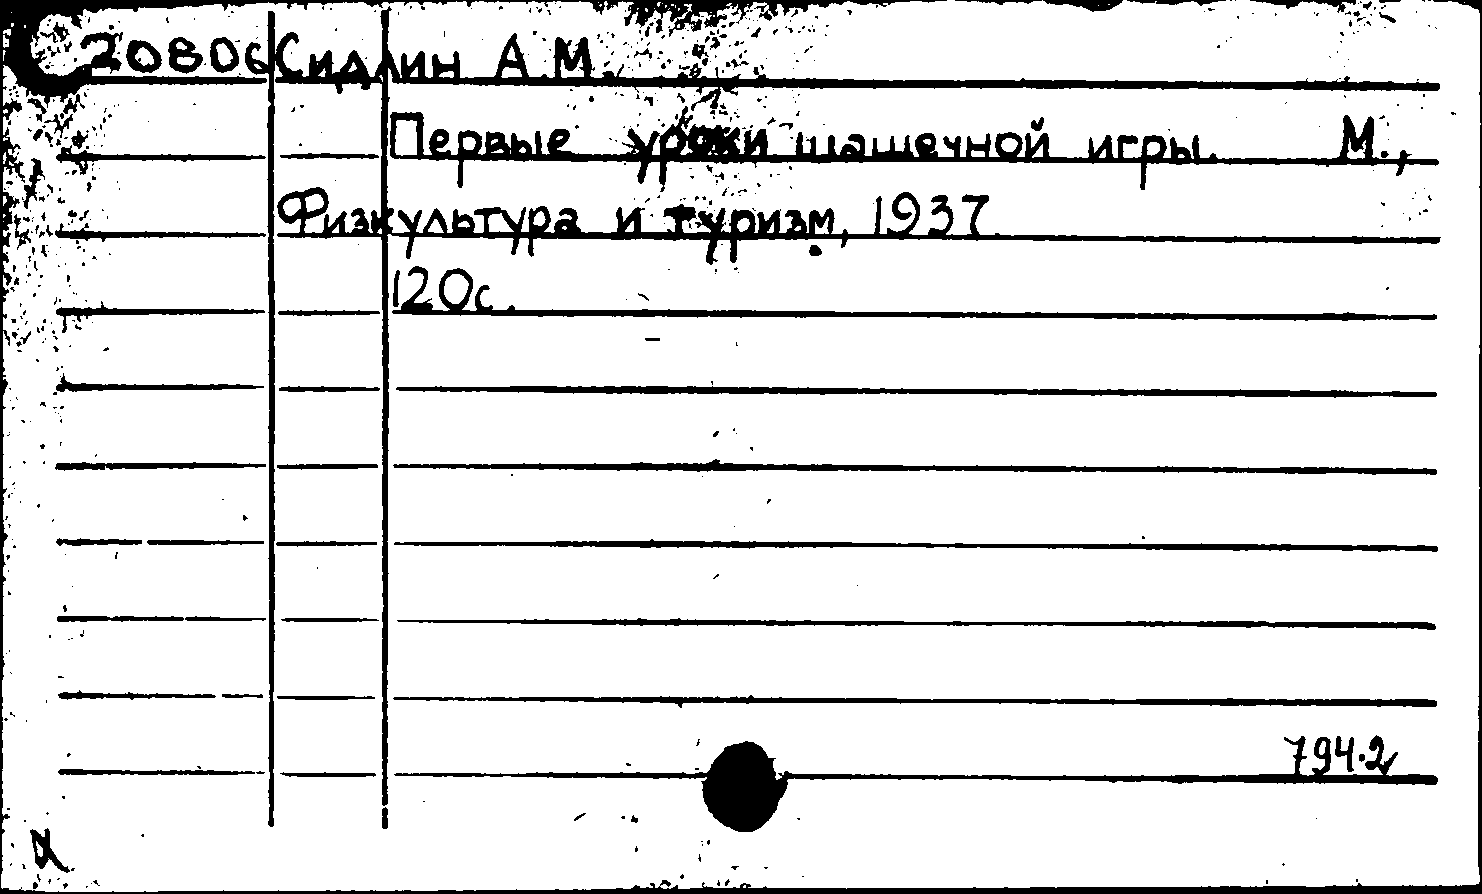 20806 Сидлин А.М.
Первые уроки шашечной игры. М.,
Физкультура и туризм, 1937.
120с.
794.2